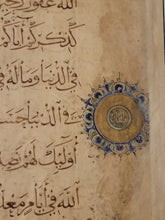 الله غفور
كذكركم آباءكم
في الدنيا وما له
في الدنيا حسنة
أولئك لهم نصيب
الله في أيام